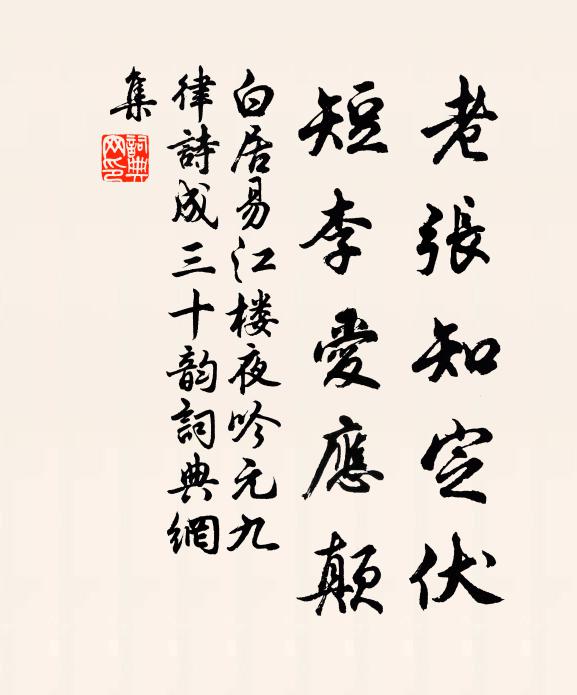 老張知定伏
短李愛應顛
白居易江楼夜吟元九
律詩成三十韵詞典網
集
詞典
网印